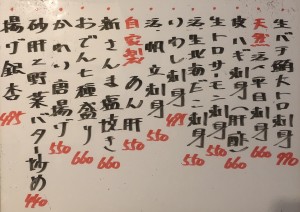 生バチ鮪大トロ刺身 990
天然活〆平目刺身 660
皮ハギ刺身(肝酢) 660
生トロサーモン刺身 550
活生北海だこ刺身 550
いわし刺身 495
活帆立刺身 550
自家製 あん肝 550
新さんま塩焼き 660
おでん七種盛り 660
かれい唐揚げ 550
砂肝と野菜バター炒め 440
揚げ銀杏 495